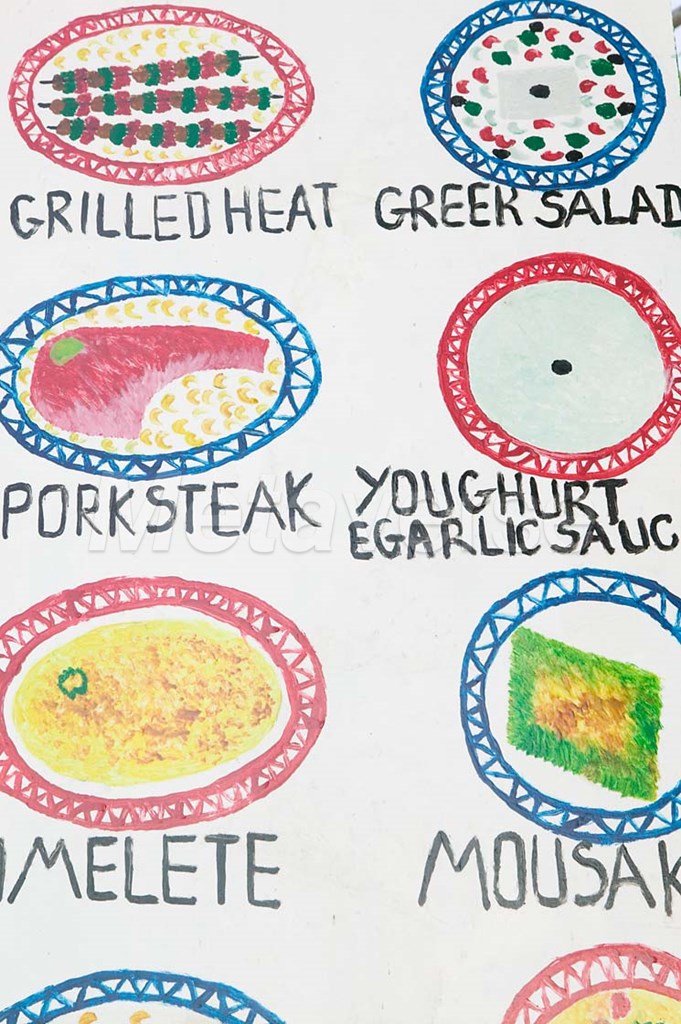 GRILLED HEAT
GREEK SALAD
PORK STEAK
YOUGHURT
EGARLIC SAUC
OMELETE
MOUSAK
Metaverse